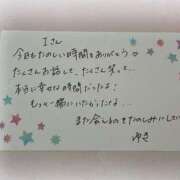 Iさん
今日もたのしい時間をありがとう♡
たくさんお話して、たくさん笑って、
本当に幸せな時間だったよ!
もっと一緒にいたかったよ...
また会えるのをたのしみにしてい
ゆき